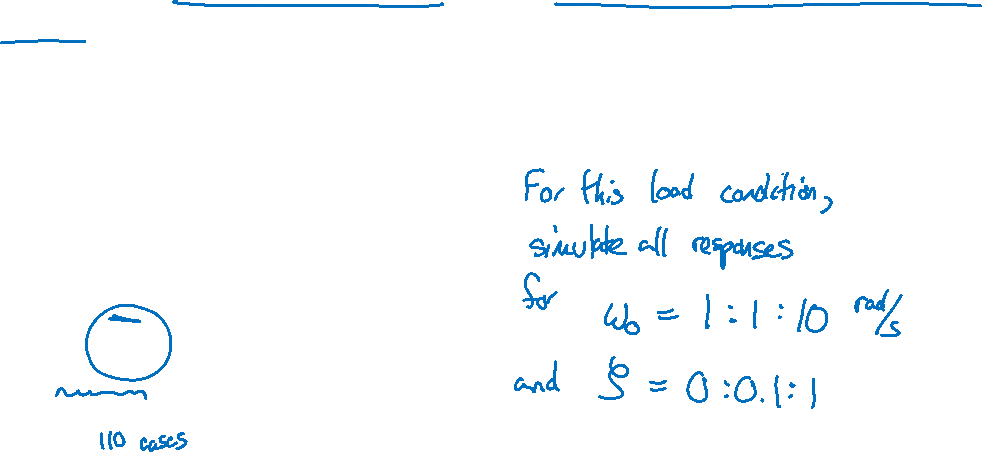 For this load condition,
simulate all responses
for ω₀ = 1:1:10 rad/s
and ζ = 0:0.1:1
110 cases